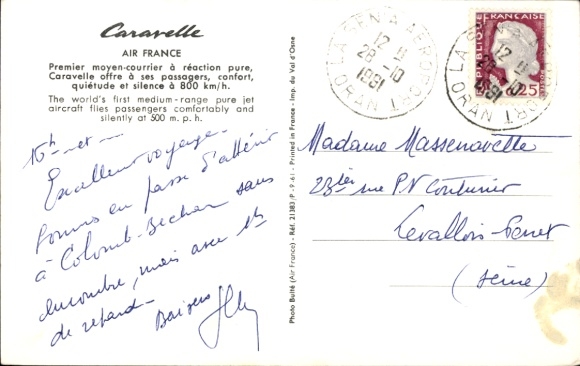 Caravelle
AIR FRANCE
Premier moyen-courrier à réaction pure,
Caravelle offre à ses passagers, confort,
quiétude et silence à 800 km/h.
The world's first medium-range pure jet
aircraft flies passengers comfortably and
silently at 500 m. p. h.
16h — et —
Excellent voyage.
Sommes en passe d'atterrir
à Colomb-Bechar sans
encombre, mais avec 1h
de retard —
Baisers
Photo Boité (Air France) - Réf. 21383 P - 9-61 - Printed in France - Imp. du Val d'Osne
LA SENIA AEROPORT
12 H
28-10
1961
ORAN
REPUBLIQUE FRANCAISE
0,25
LA SENIA AEROPORT
12 H
28-10
1961
ORAN
Madame Massenavette
23ter rue P.V Couturier
Levallois-Perret
(Seine)